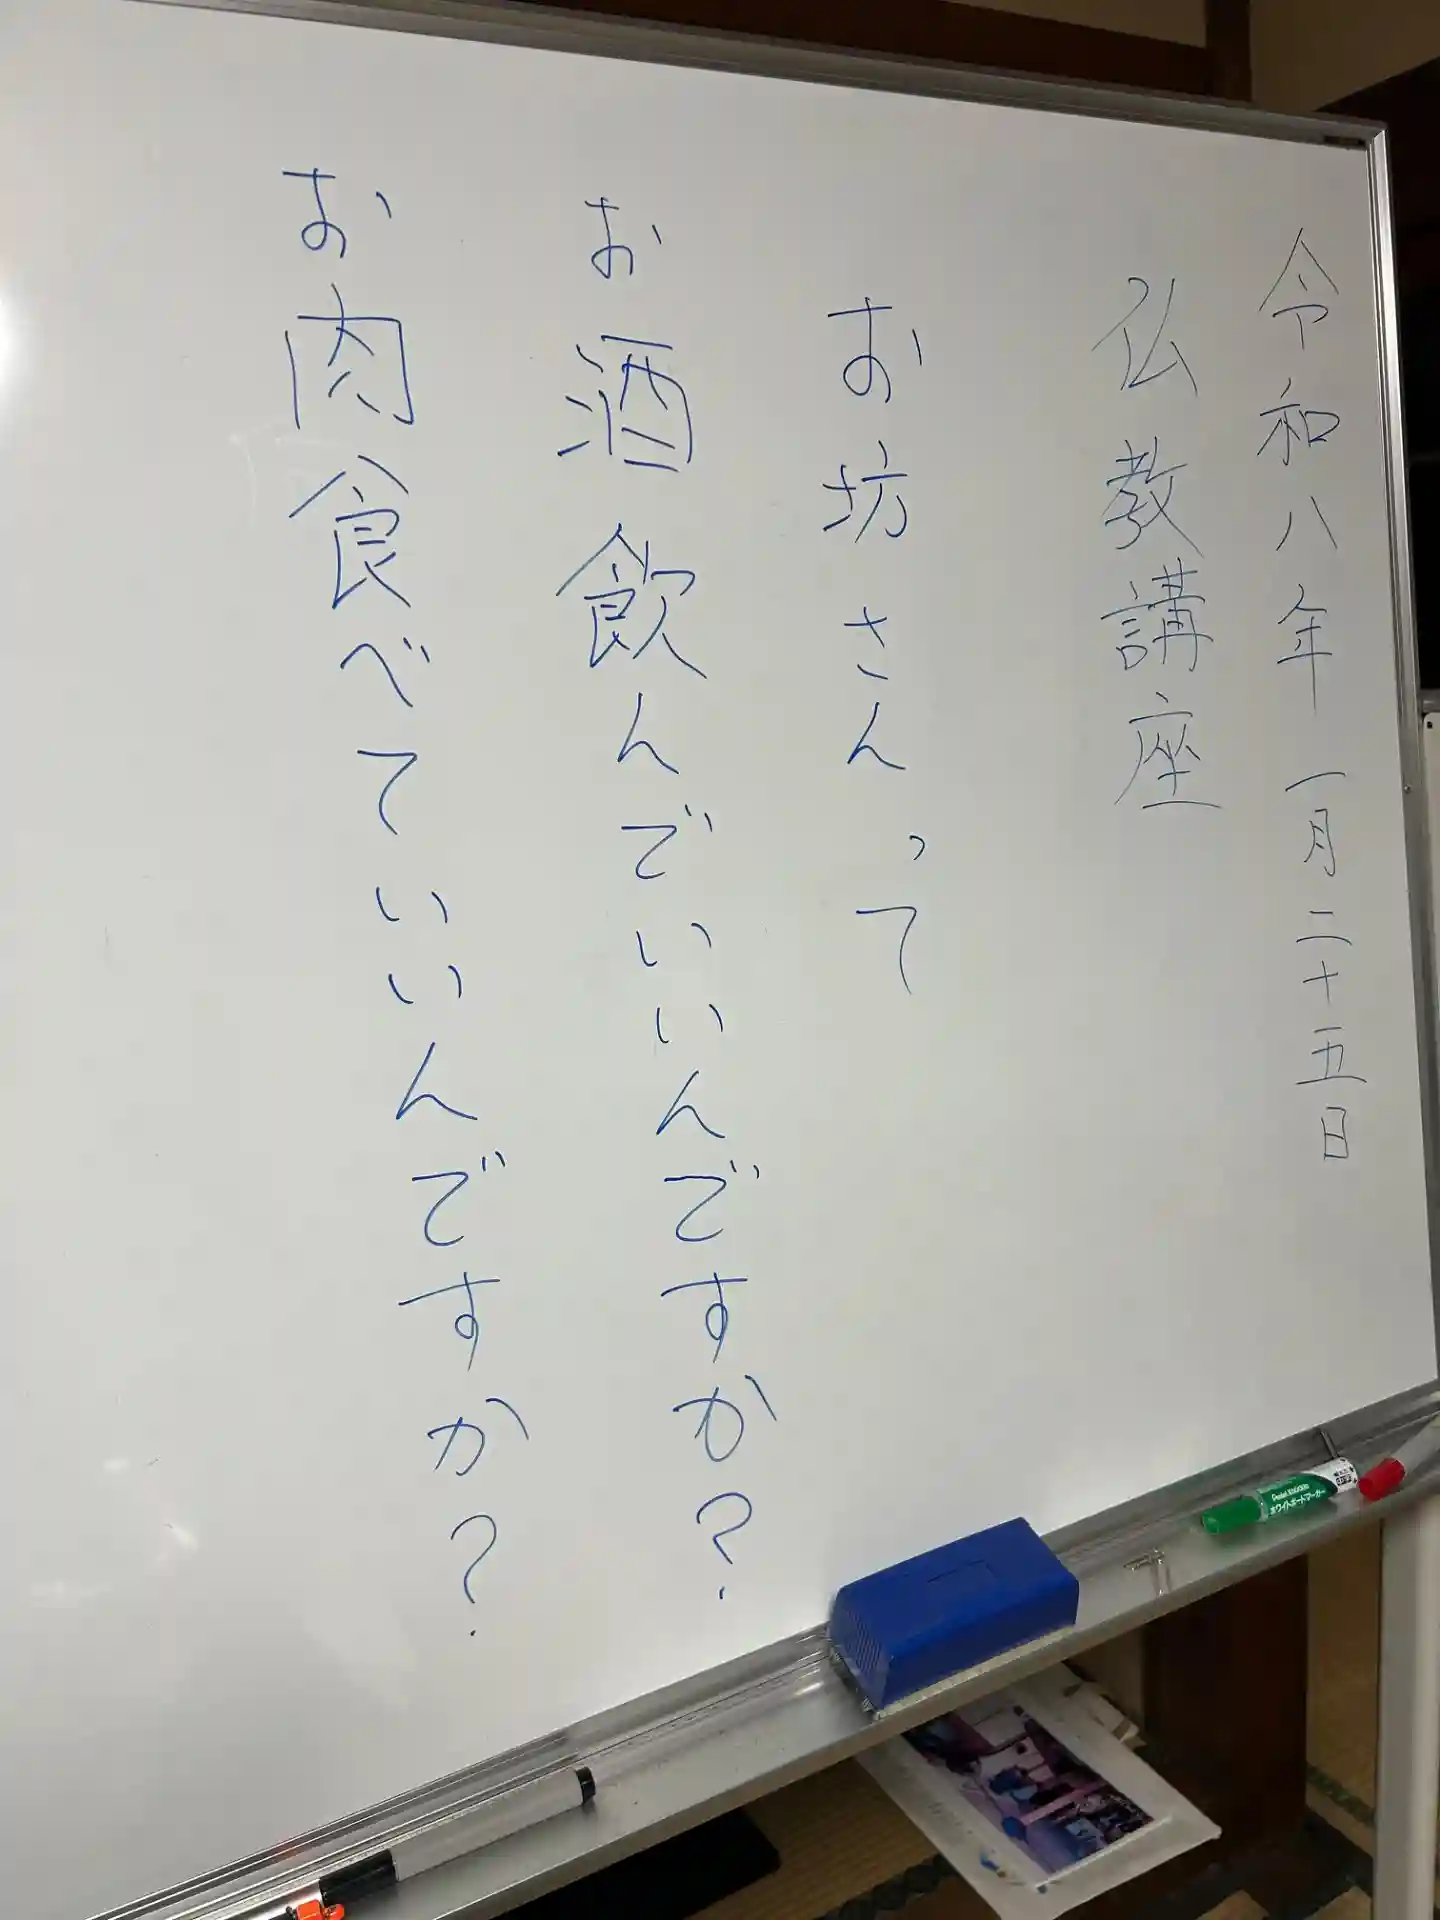 令和八年一月二十五日
仏教講座
お坊さんって
お酒飲んでいいんですか?
お肉食べていいんですか?
ホワイトボードマーカー